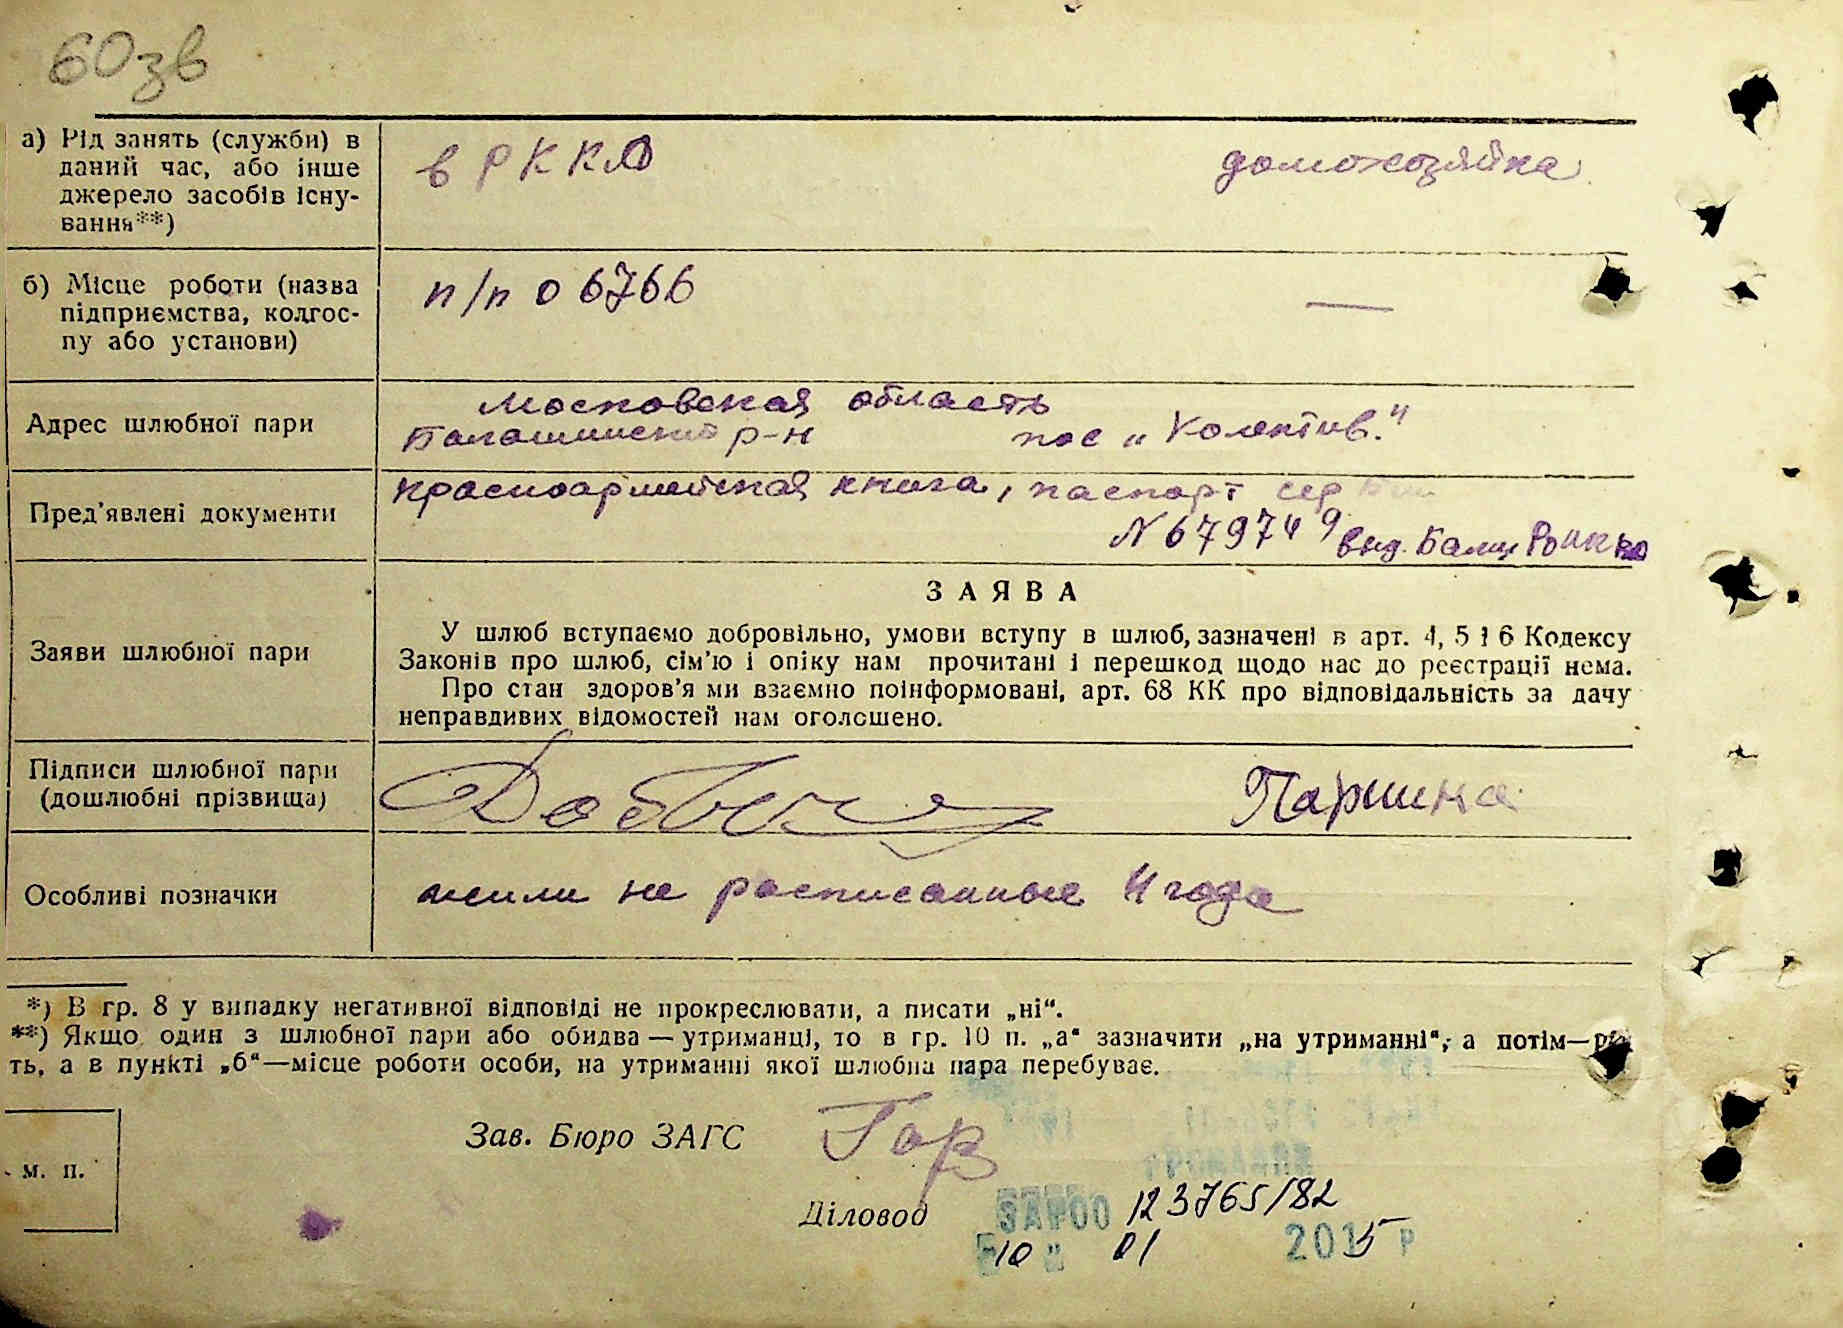 60зв
а) Рід занять (служби) в
даний час, або інше
джерело засобів існу-
вання**)
в РККА
домохозяйка
б) Місце роботи (назва
підприємства, колгос-
пу або установи)
п/п 06766
—
Адрес шлюбної пари
Московская область
Балашинский р-н пос „Колектив."
Пред'явлені документи
красноармейская книга, паспорт сер
N 679749 выд. Балш
ЗАЯВА
Заяви шлюбної пари
У шлюб вступаємо добровільно, умови вступу в шлюб, зазначені в арт. 4, 5 і 6 Кодексу
Законів про шлюб, сім'ю і опіку нам прочитані і перешкод щодо нас до реєстрації нема.
Про стан здоров'я ми взаємно поінформовані, арт. 68 КК про відповідальність за дачу
неправдивих відомостей нам оголошено.
Підписи шлюбної пари
(дошлюбні прізвища)
Паршина
Особливі позначки
жили не расписанные 4 года
*) В гр. 8 у випадку негативної відповіді не прокреслювати, а писати „ні“.
**) Якщо один з шлюбної пари або обидва — утриманці, то в гр. 10 п. „а“ зазначити „на утриманні“, а потім—
ть, а в пункті „б“—місце роботи особи, на утриманні якої шлюбна пара перебуває.
Зав. Бюро ЗАГС
м. п.
Діловод
123765/82
10 " 01 2015 р